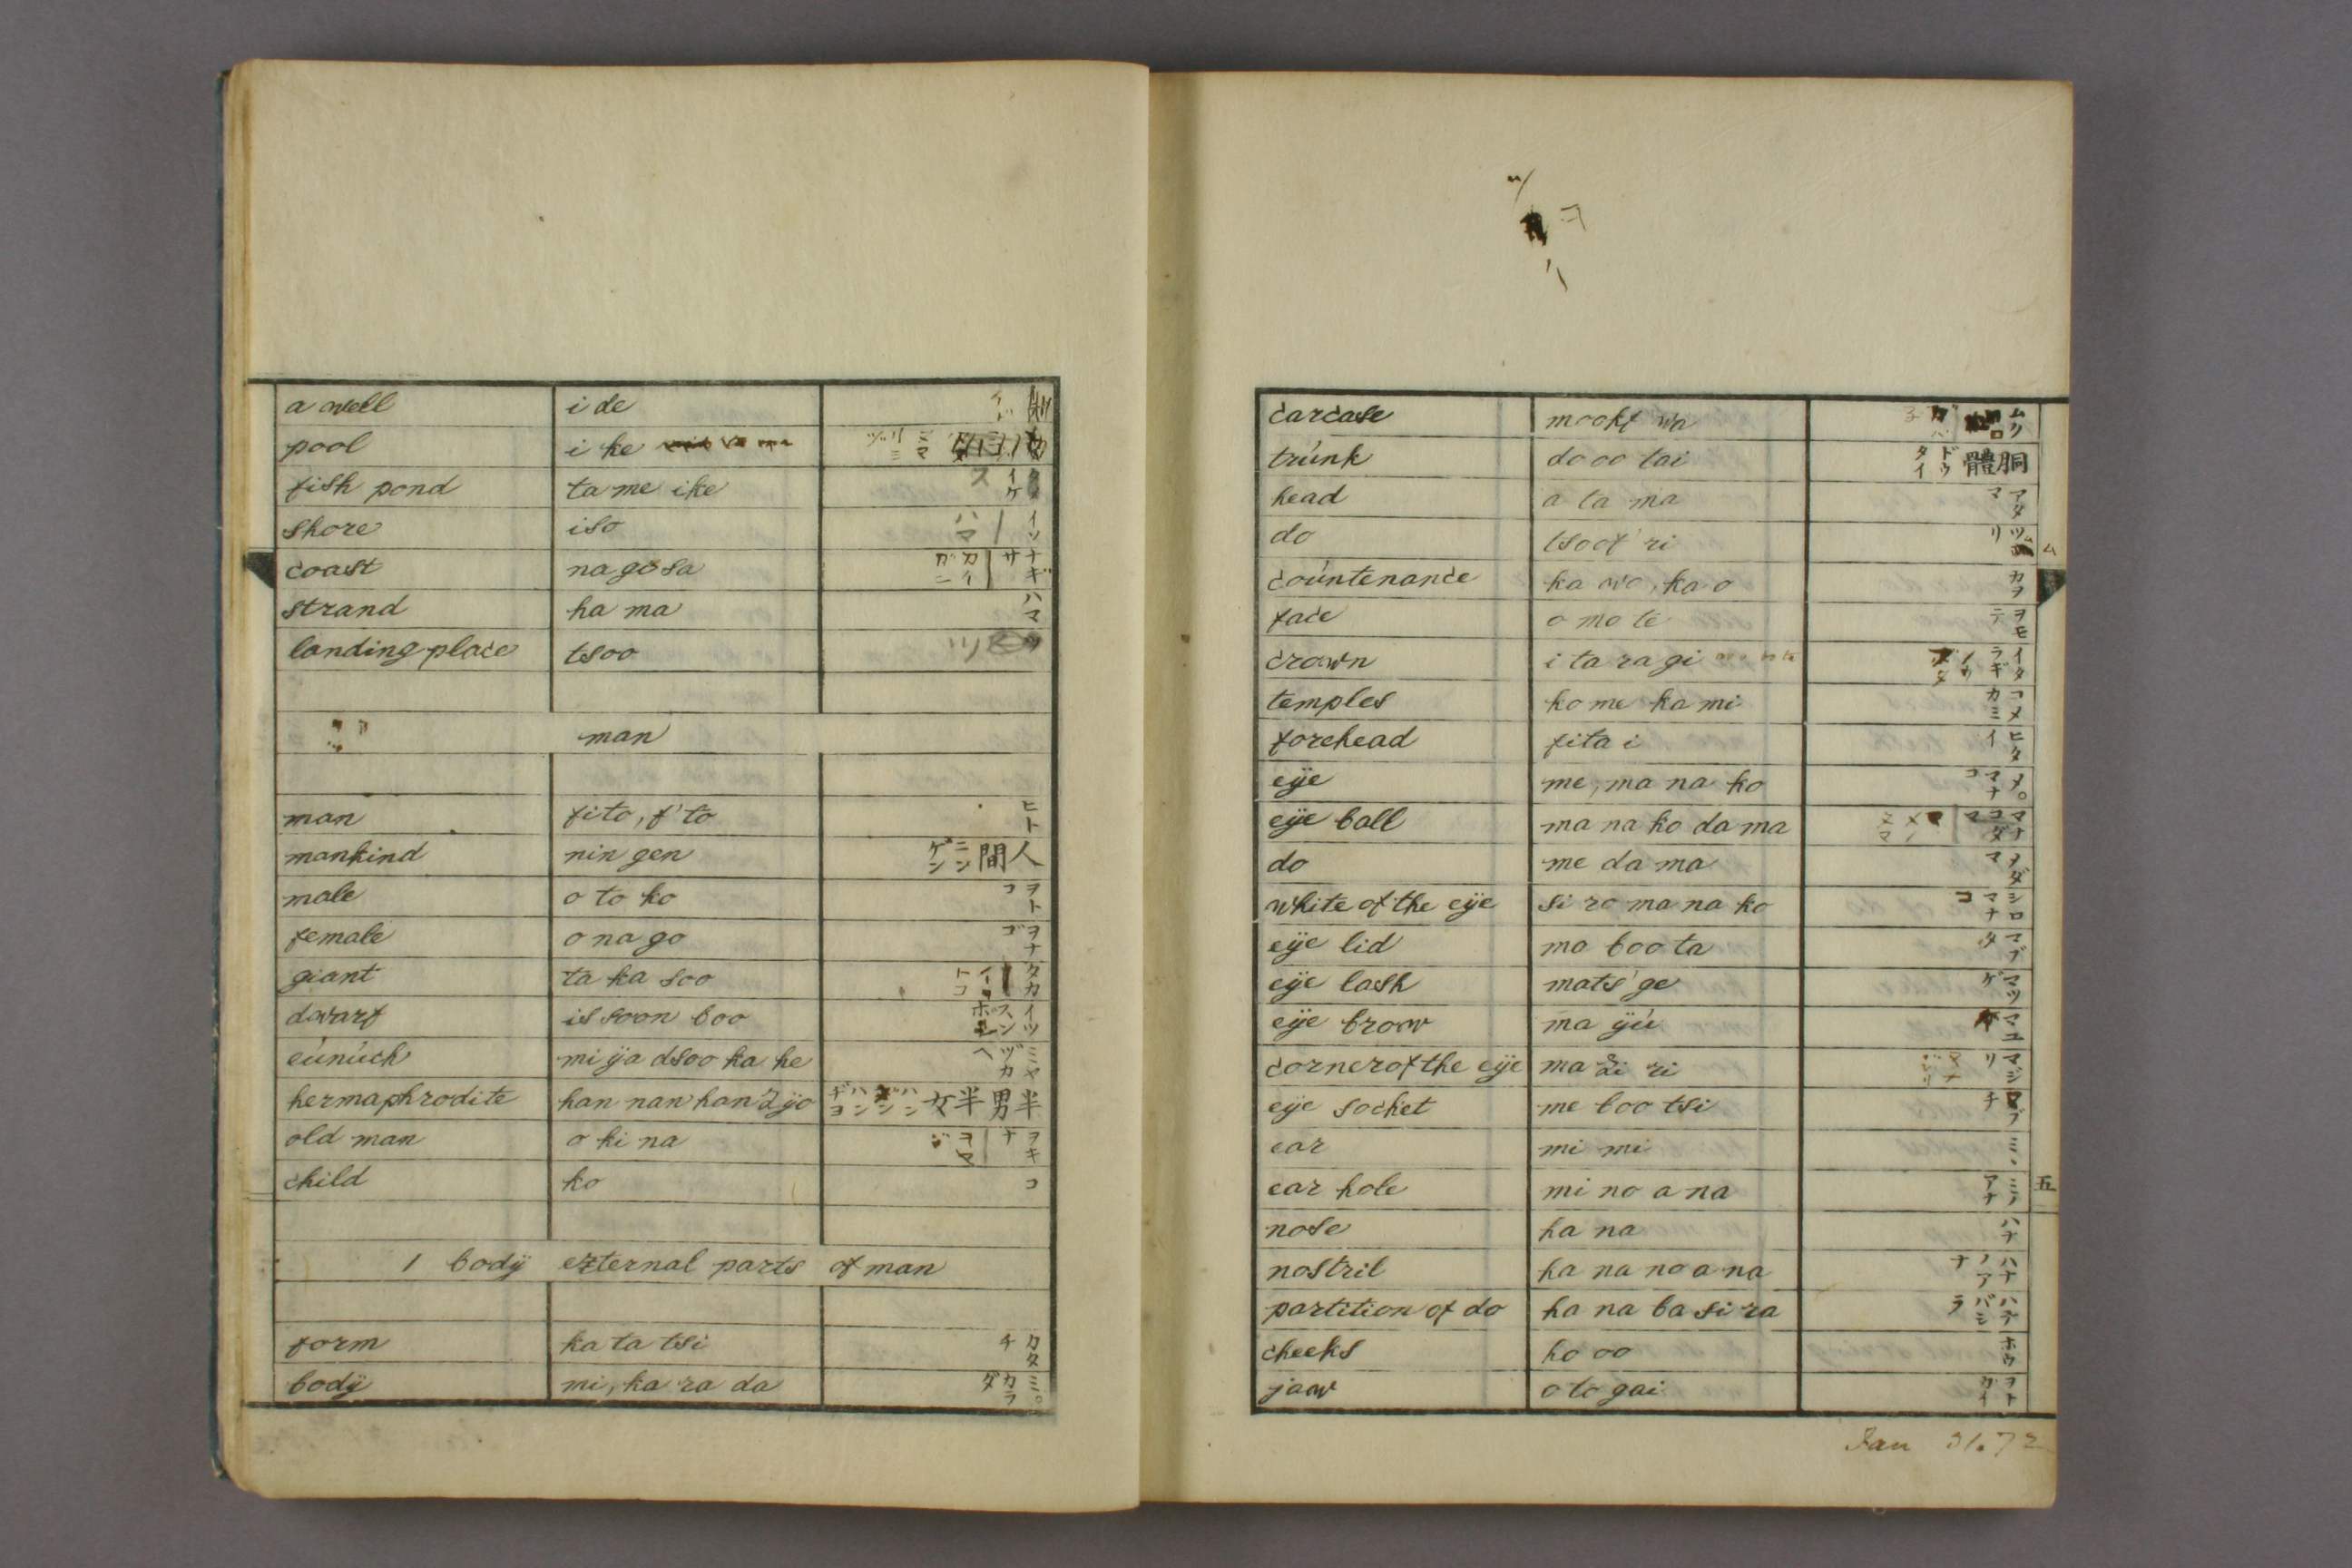 a well i de
pool i ke
fish pond ta me ike イケス
shore iso イソ ハマ
coast na gi sa ナギサ
strand ha ma ハマ
landing place tsoo
man
man fito, f'to ヒト
mankind nin gen 人間 ニンゲン
male o to ko ヲトコ
female o na go ヲナゴ
giant ta ka soo タカ
dwarf is soon boo イツスン
eúnúch mi ÿa dsoo ka he ミヤヅカヘ
hermaphrodite han nan han ÿo 半男半女
old man o ki na ヲキナ
child ko コ
1 bodÿ external parts of man
form ka ta tsi カタチ
bodÿ mi, ka ra da ミ。カラダ
carcase ムク
trúnk do oo tai 胴體 ドウタイ
head a ta ma アタマ
do tsoof' ri ツ リ ム
coúntenance ka wo, ka o カヲ
face o mo te ヲモテ
crown i ta ra gi イタラギ
temples ko me ka mi コメカミ
forehead fita i ヒタイ
eÿe me, ma na ko メ。マナコ
eÿe ball ma na ko da ma マナコダマ
do me da ma メダマ
white of the eÿe si ro ma na ko シロマナコ
eÿe lid ma boo ta マブタ
eÿe lash mats' ge マツゲ
eÿe brow ma ÿú マユ
corner of the eÿe ma ri マジリ
eÿe socket me boo tsi ブチ
ear mi mi ミヽ
ear hole mi no a na ミノアナ 五
nose ha na ハナ
nostril ha na no a na ハナノアナ
partition of do ha na ba si ra ハナバシラ
cheeks ho oo ホウ
jaw o to gai ヲトガイ
Jan 31. 72